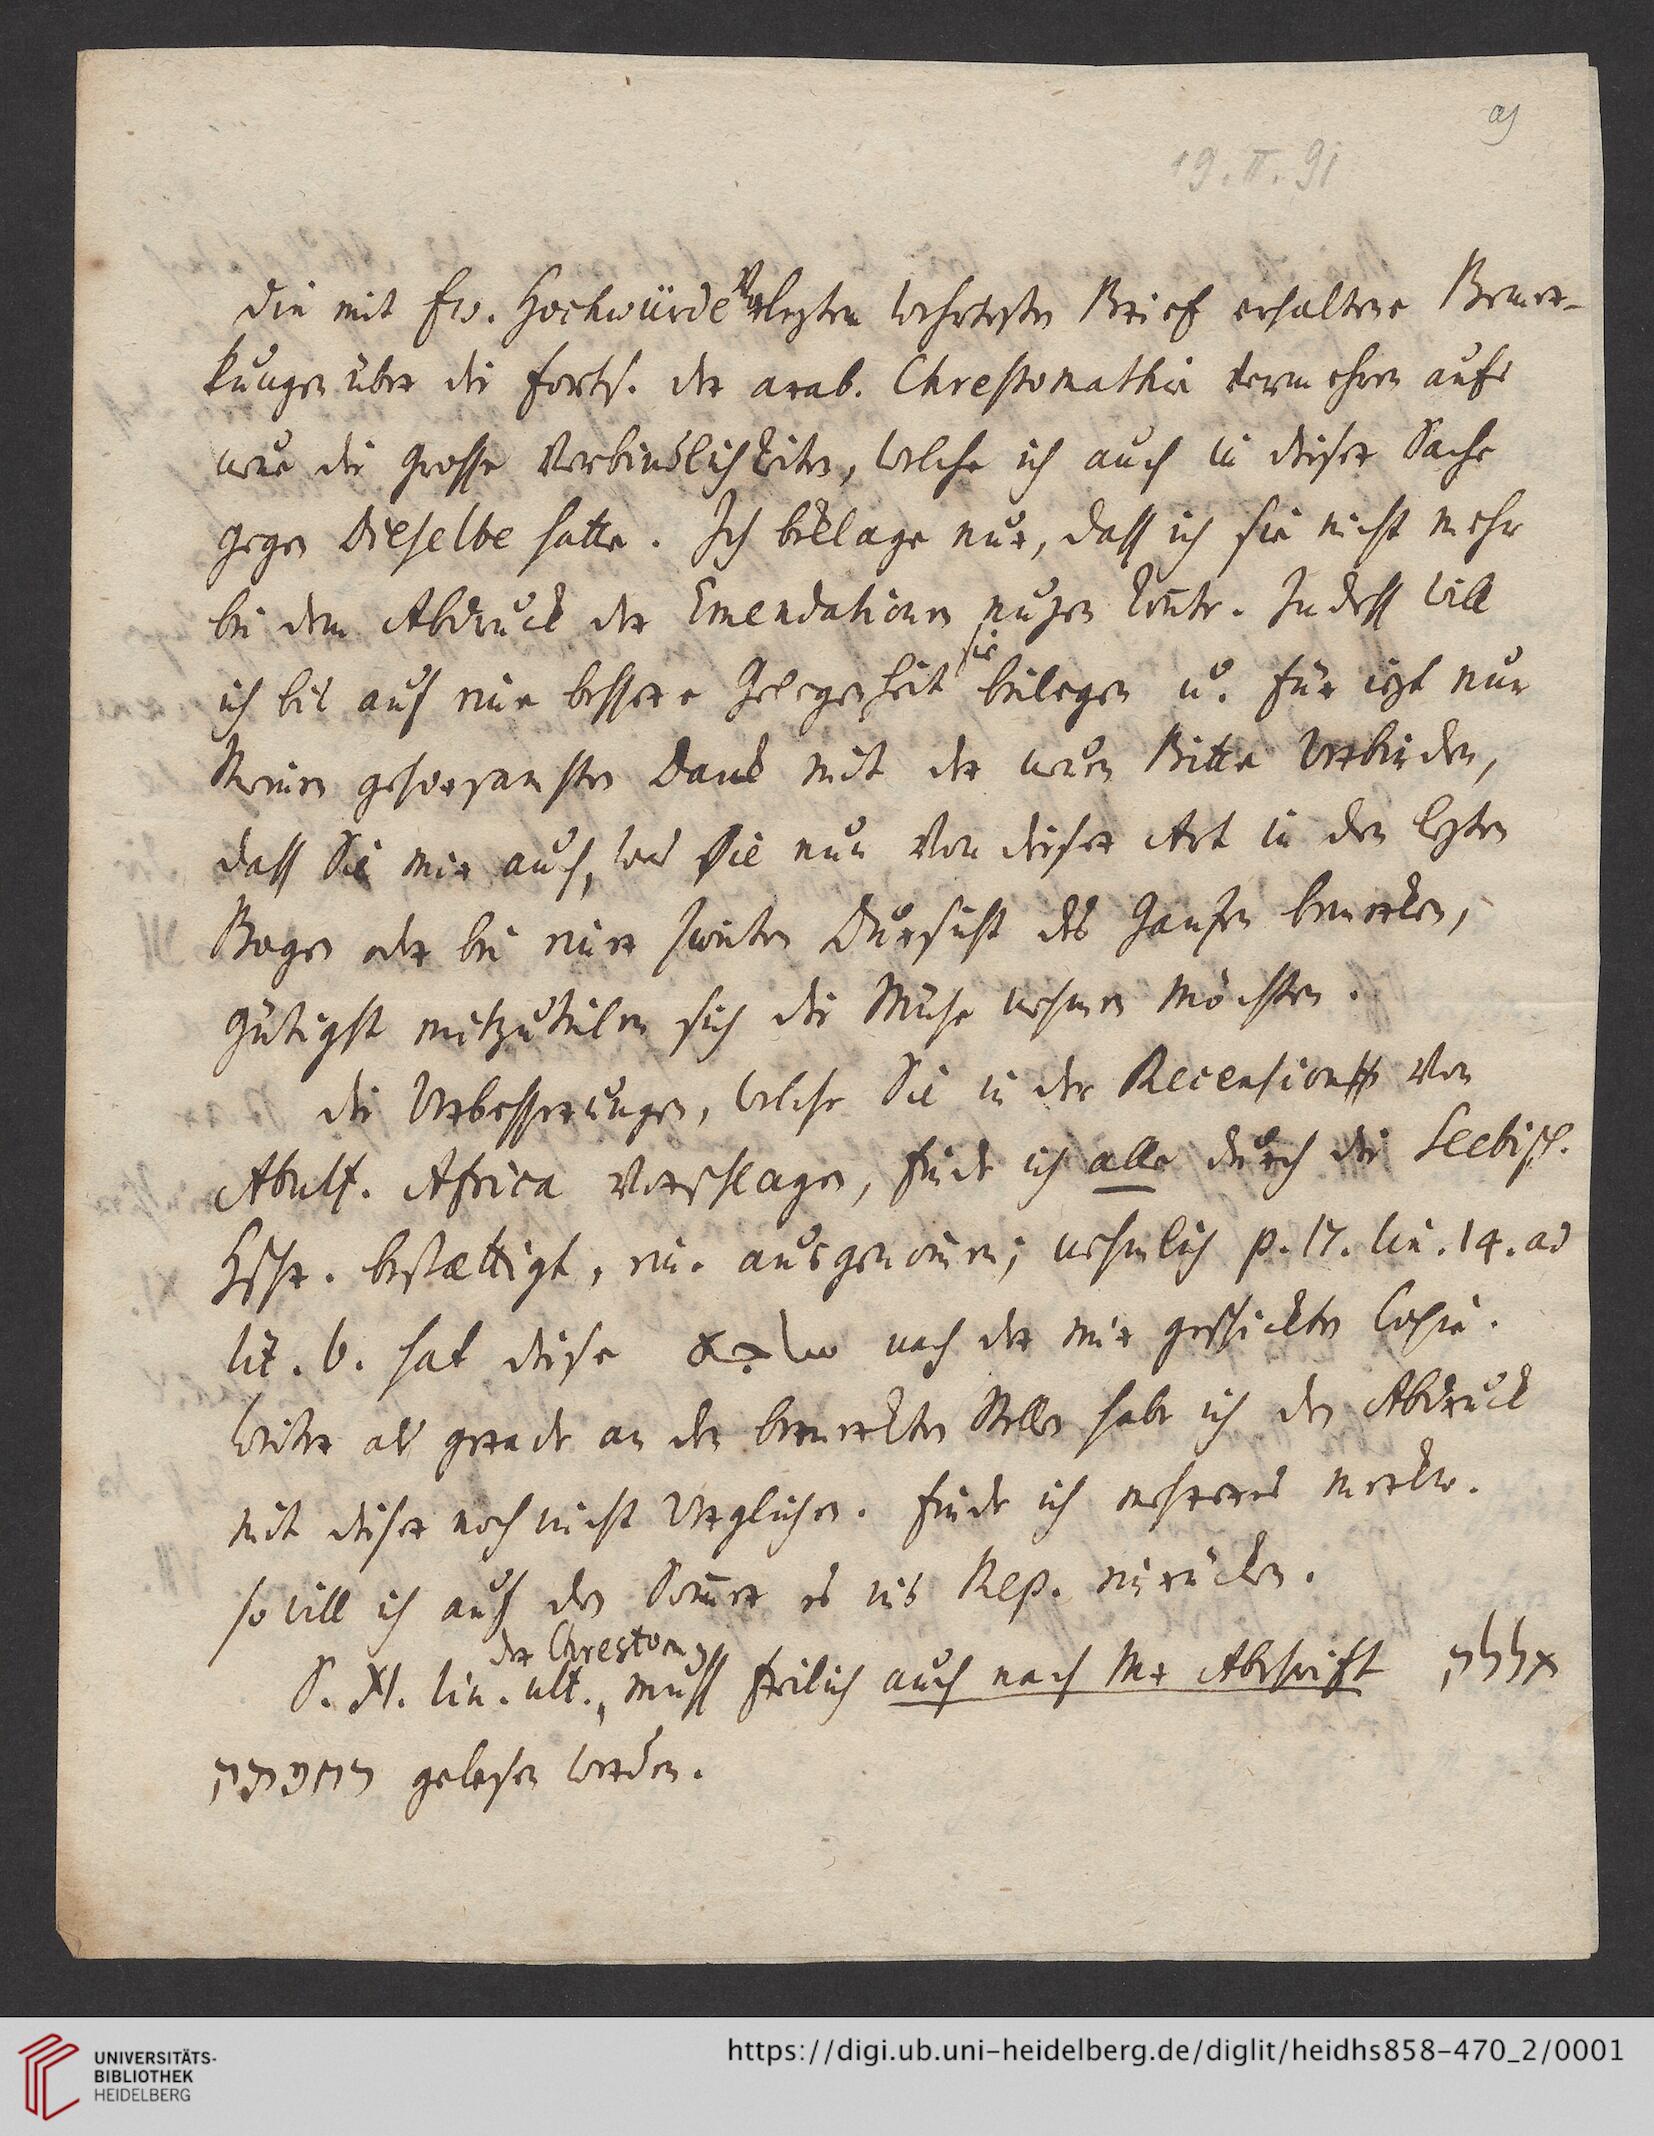 a)
19. II. 91
Die mit Ew. Hochwürde leztem wehrtesten Brief erhaltene Bemer-
kungen über die Forts. der arab. Chrestomathie vermehren aufs
neue die grosse Verbindlichkeiten, welche ich auch in dieser Sache
gegen Dieselbe hatte. Ich beklage nur, dass ich sie nicht mehr
bei dem Abdruck der Emendationen nuzen konte. Indess will
ich bis auf eine bessere Gelegenheit sie beilegen u. für iezt nur
Meinen gehorsamsten Dank mit der neuen Bitte verbinden,
dass Sie mir auch, was Sie nun von dieser Art in den lezten
Bogen oder bei einer zweiten Dursicht des Ganzen bemerken,
gütigst mitzuteilen sich die Mühe nehmen möchten.
Die Verbesserungen, welche Sie in der Recension von
Abulf. Africa vorschlagen, finde ich alle durch die Seebisch.
Hschr. bestaettigt, eine ausgenommen; nehmlich p. 17. lin. 14. ad
lit. b. hat diese nach der mir geschickten Copie.
Weiter als gerade an den bemerkten Stellen habe ich den Abdruck
mit dieser noch nicht verglichen. Finde ich mehreres merkw.
so will ich auf den Sommer es ins Rep. einrücken.
der Chrestom.
S. XI. lin. ult., muss freilich auch nach Mr Abschrift
gelesen werden.
UNIVERSITÄTS-
BIBLIOTHEK
HEIDELBERG
https://digi.ub.uni-heidelberg.de/diglit/heidhs858-470_2/0001